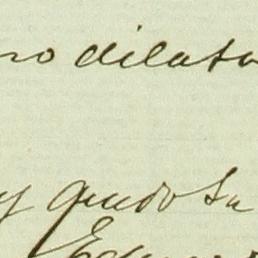 no dilata
y quedo su